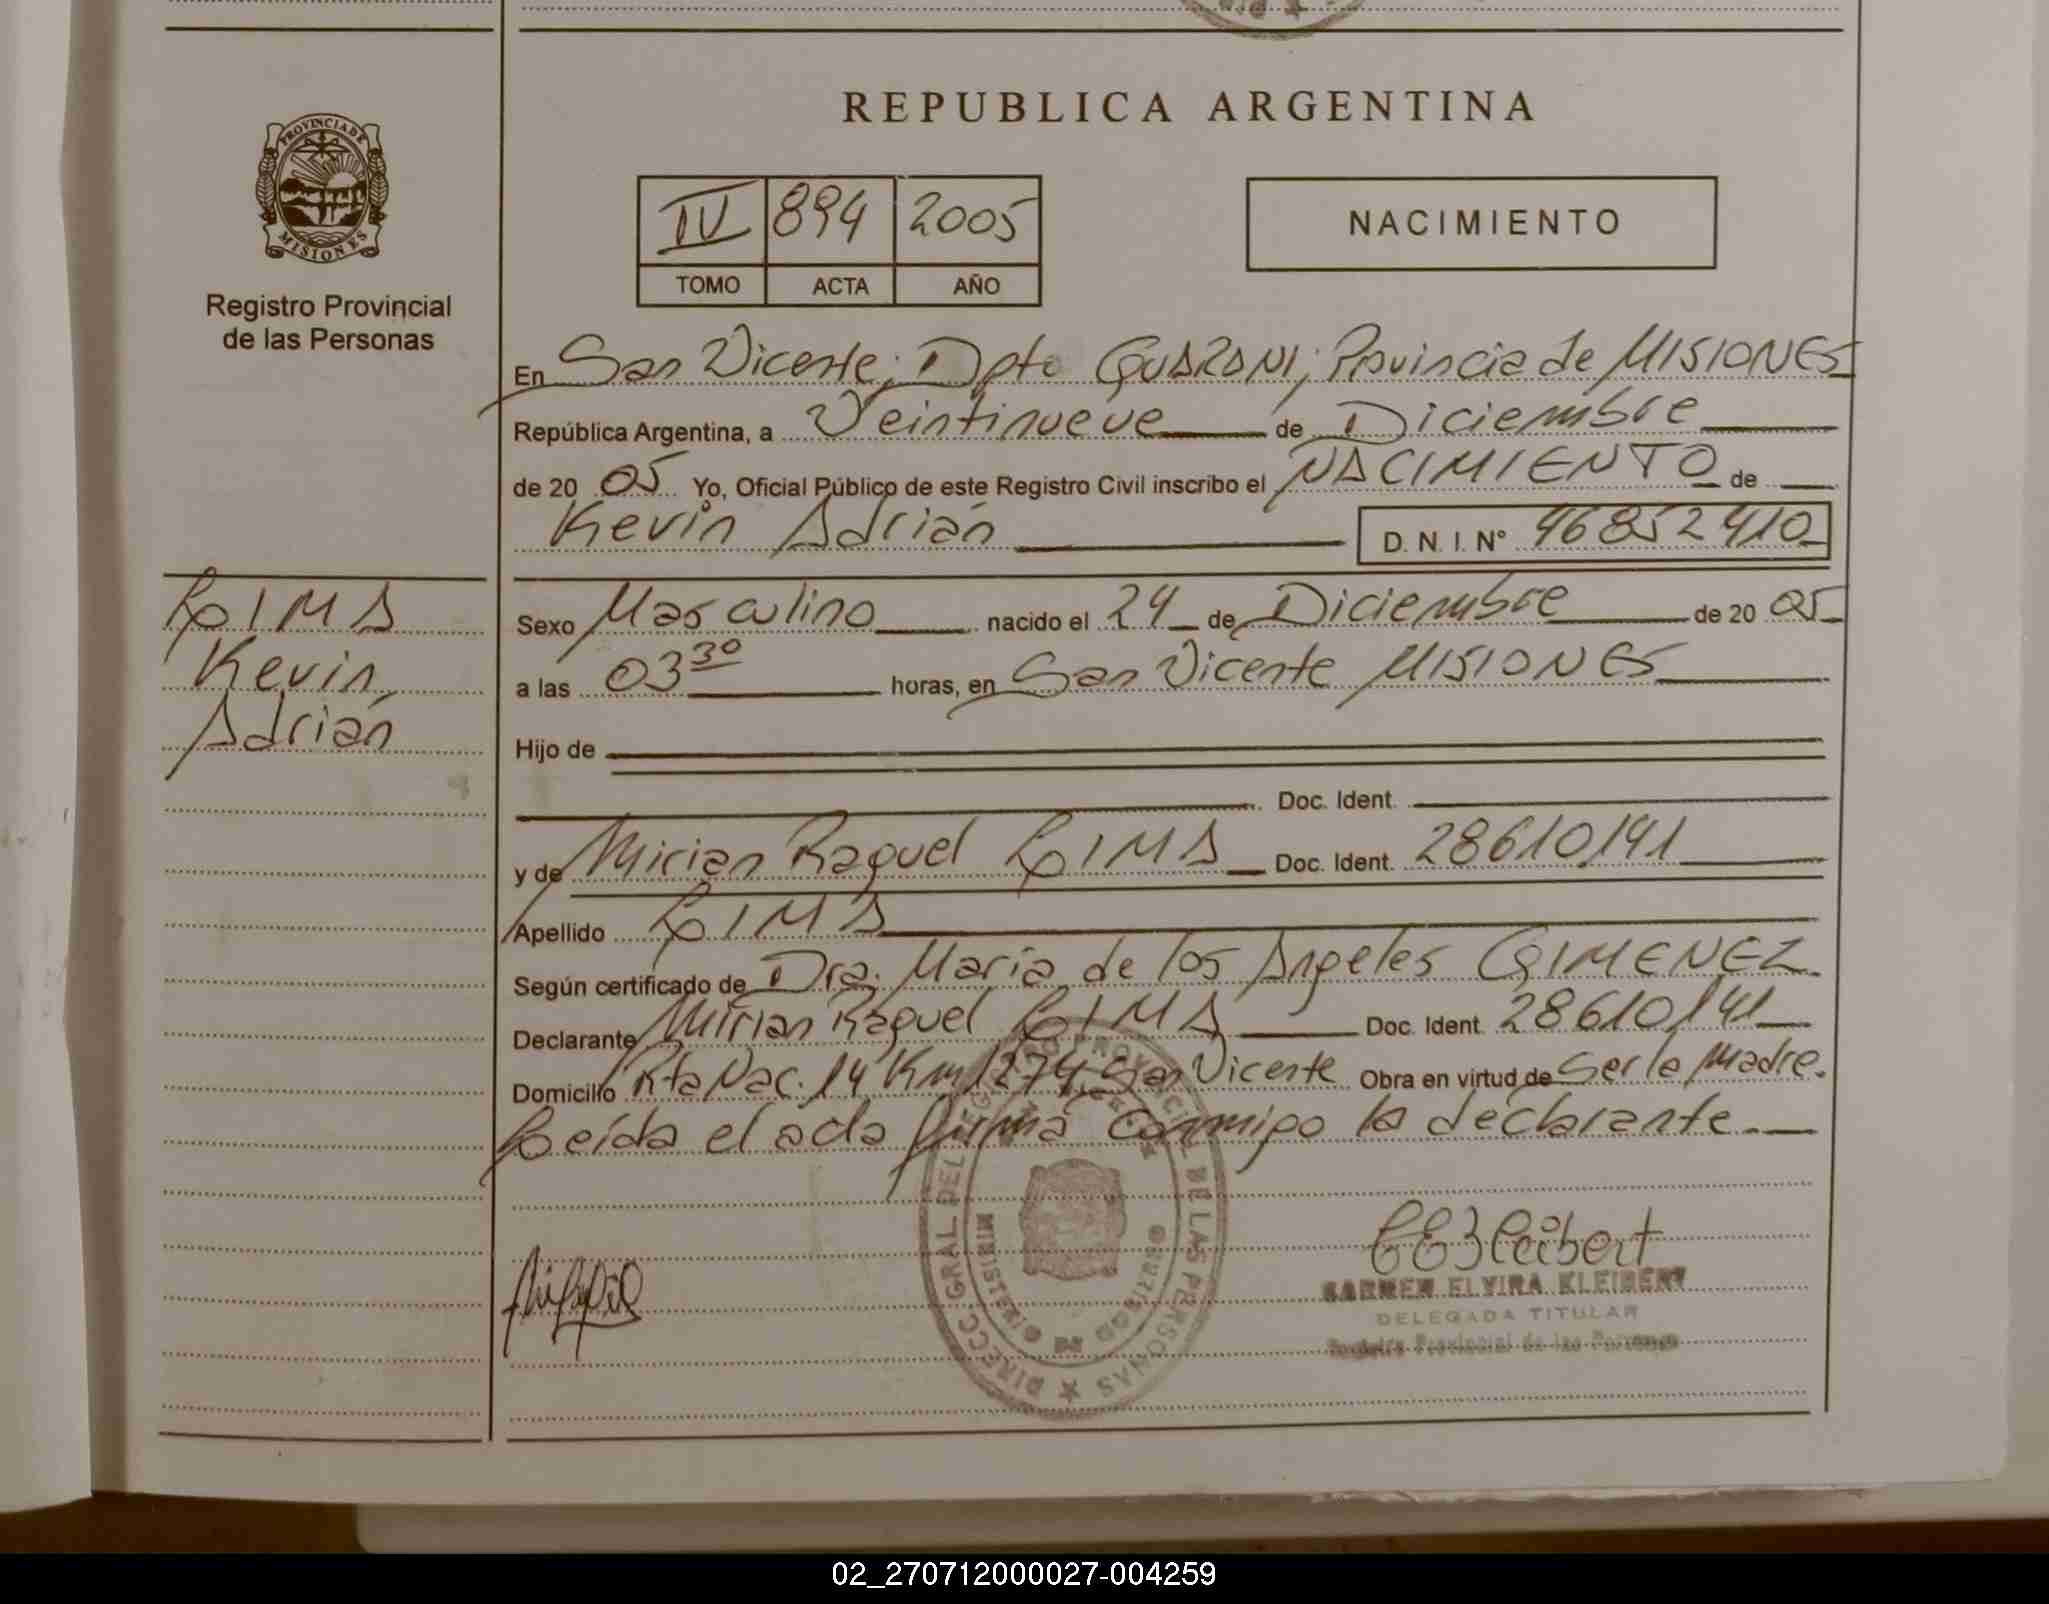 REPUBLICA ARGENTINA
PROVINCIA DE
MISIONES
Registro Provincial
de las Personas
IV 894 2005
TOMO ACTA AÑO
NACIMIENTO
En San Vicente; Dpto GUARANI; Provincia de MISIONES
República Argentina, a Veintinueve de Diciembre
de 20 05 Yo, Oficial Público de este Registro Civil inscribo el NACIMIENTO de
Kevin Adrián D. N. I. N° 46852410
LIMA
Kevin
Adrián
Sexo Masculino nacido el 24 de Diciembre de 20 05
a las 03 30 horas, en San Vicente MISIONES
Hijo de
Doc. Ident.
y de Mirian Raquel LIMA Doc. Ident. 28610141
Apellido LIMA
Según certificado de Dra. María de los Angeles GIMENEZ
Declarante Mirian Raquel LIMA Doc. Ident. 28610141
Domicilio Rta Nac. 14 Km 1274 San Vicente Obra en virtud de Ser la Madre.
Leída el acta firma conmigo la declarante.
DIRECC GRAL DEL REGISTRO PROVINCIAL DE LAS PERSONAS
MINISTERIO DE GOBIERNO
CARMEN ELVIRA KLEIBERT
DELEGADA TITULAR
Registro Provincial de las Personas
02_270712000027-004259